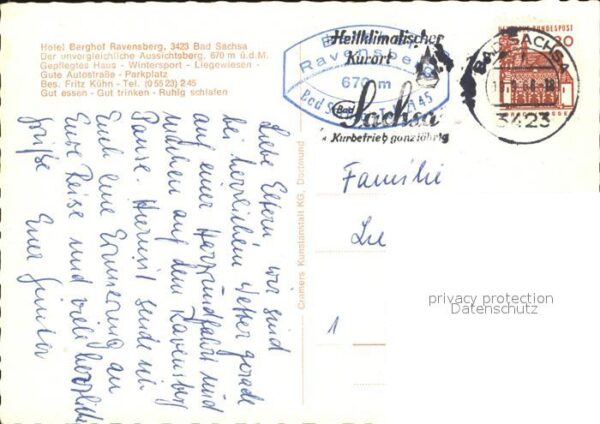 Hotel Berghof Ravensberg, 3423 Bad Sachsa
Der unvergleichliche Aussichtsberg, 670 m ü.d.M.
Gepflegtes Haus - Wintersport - Liegewiesen -
Gute Autostraße - Parkplatz
Bes. Fritz Kühn - Tel. (0 55 23) 2 45
Gut essen - Gut trinken - Ruhig schlafen
Heilklimatischer
Kurort
Bad
Sachsa
Kurbetrieb ganzjährig
Ravensberg
670 m
BAD SACHSA
3423
DEUTSCHE BUNDESPOST
30
Liebe Eltern, wir sind
bei herrlichem Wetter gerade
auf einer Harzrundfahrt und
machen auf dem Ravensberg
Pause. Hiermit sende ich
Euch eine Erinnerung an
Eure Reise und viele herzliche
Grüße Euer Günter
Cramers Kunstanstalt KG, Dortmund
Familie
1
privacy protection
Datenschutz